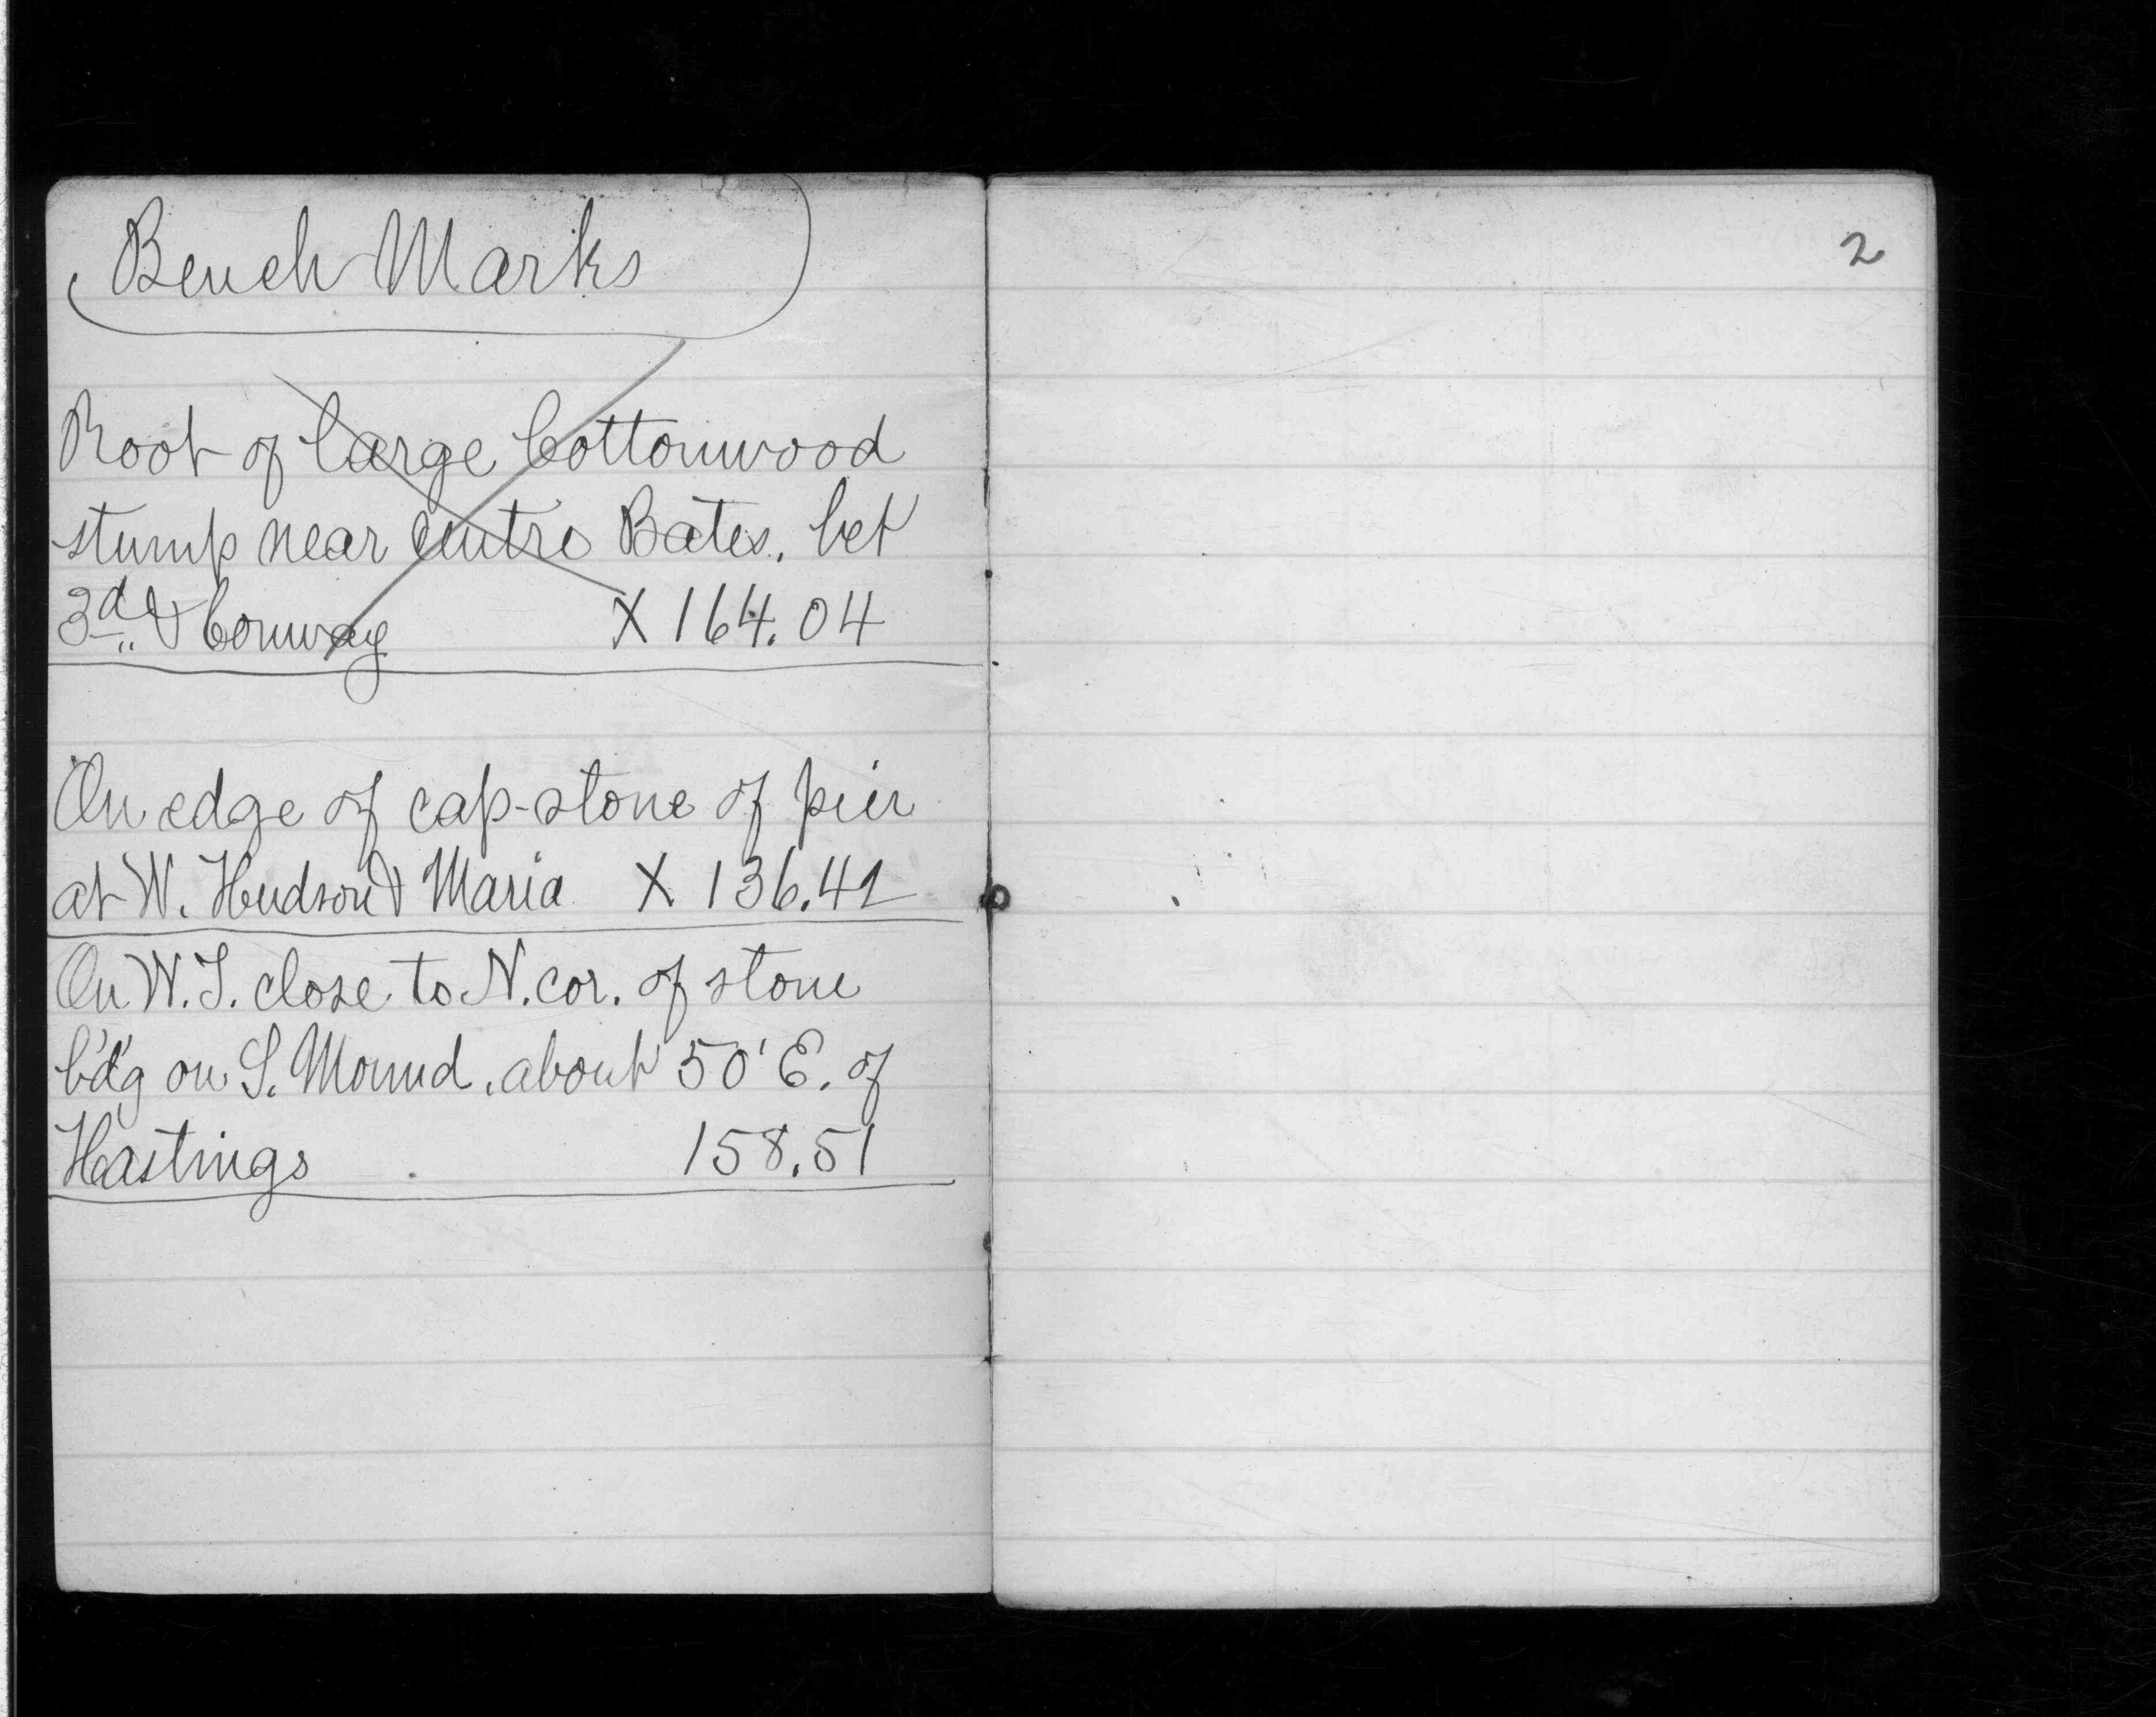 Bench Marks
Root of large Cottonwood
stump near centre Bates, bet
3d & Conway X 164.04
On edge of cap-stone of pier
at W. Hudson & Maria X 136.42
On W.T. close to N. cor. of stone
b'd'g on S. Mound, about 50' E. of
Hastings 158.51
2